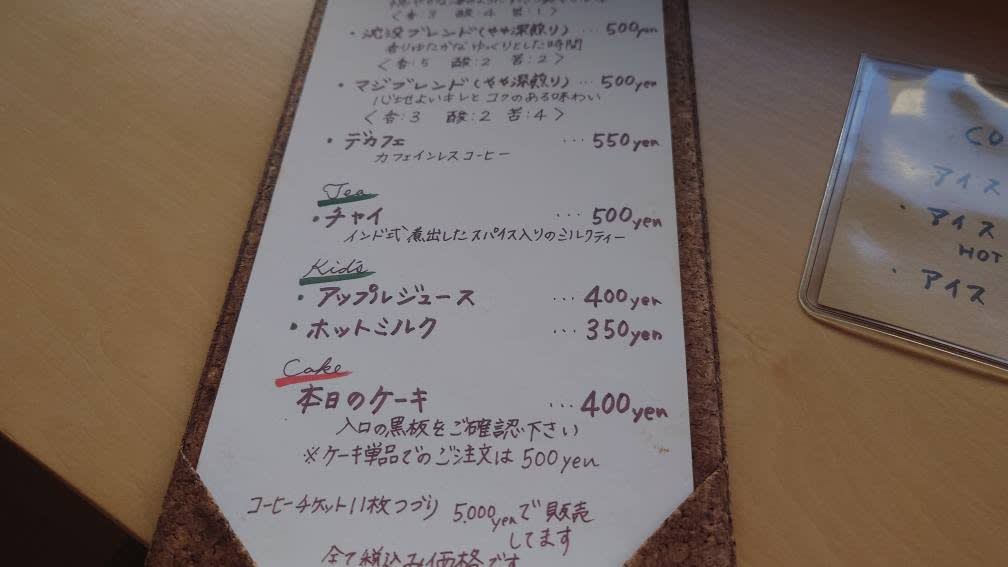 〈香:3 酸:4 苦:1〉
・沈没ブレンド(やや深煎り) … 500yen
香りゆたかな ゆっくりとした時間
〈香:5 酸:2 苦:2〉
・マジブレンド(やや深煎り) … 500yen
心地よいキレと コクのある味わい
〈香:3 酸:2 苦:4〉
・デカフェ … 550yen
カフェインレスコーヒー
Tea
・チャイ … 500yen
インド式 煮出したスパイス入りのミルクティー
Kid's
・アップルジュース … 400yen
・ホットミルク … 350yen
Cake
本日のケーキ … 400yen
入口の黒板をご確認下さい
※ケーキ単品でのご注文は 500yen
コーヒーチケット11枚つづり 5,000yenで販売
してます
全て税込み価格です
CO
アイス
・アイス
HOT
・アイス